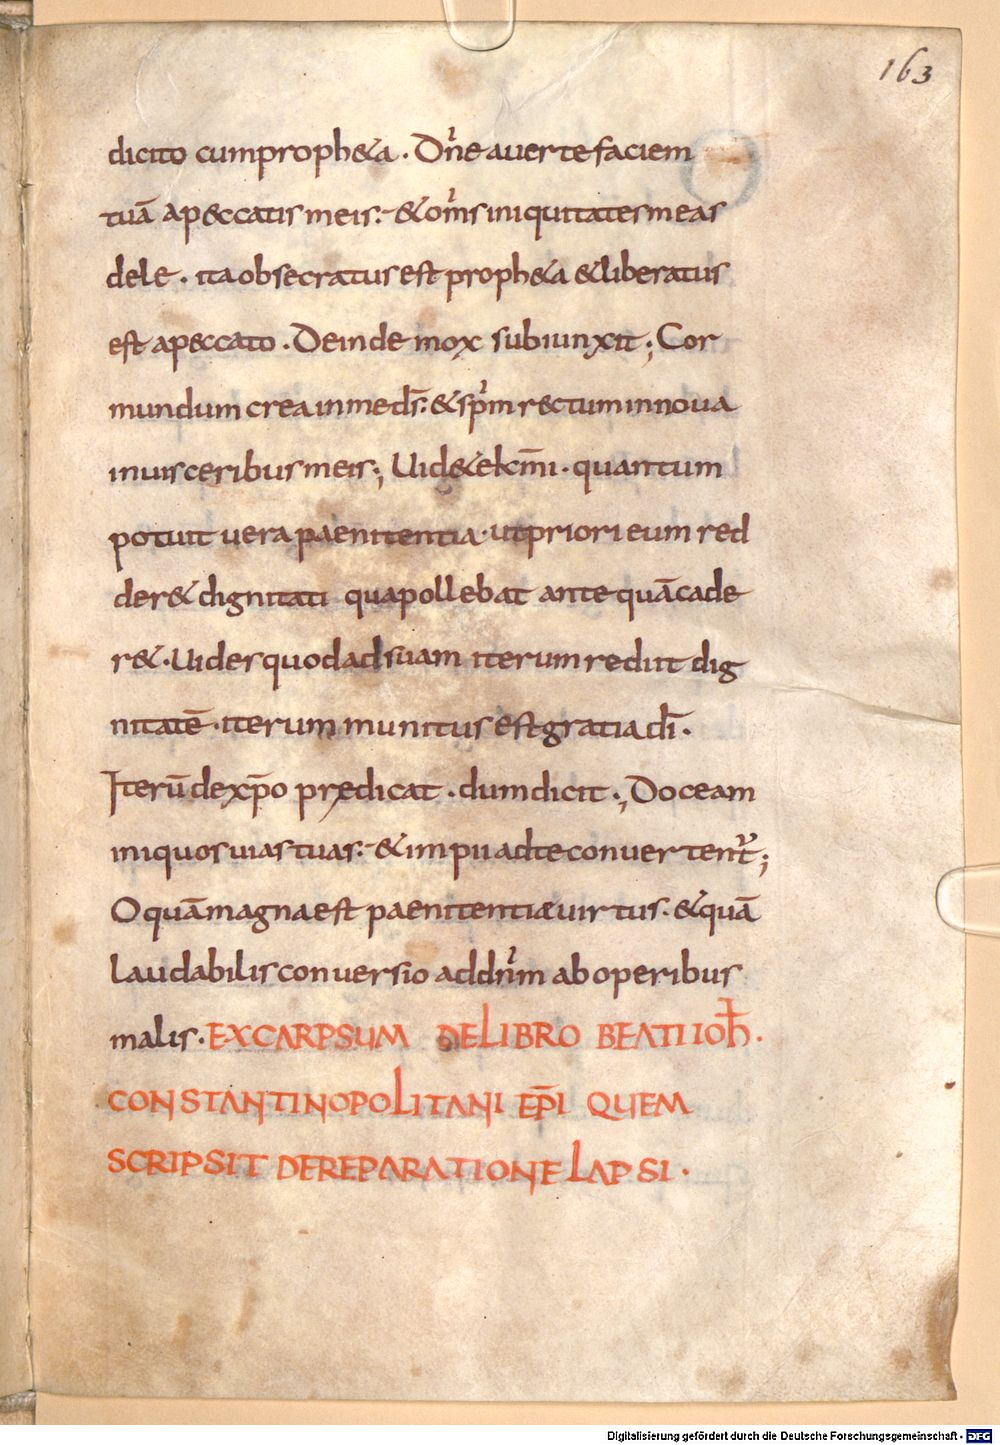 163
dicito cum proph&a. Dn̄e auerte faciem
tuā a peccatis meis: & om̄s iniquitates meas
dele. ita obsecratus est proph&a & liberatus
est a peccato. Deinde mox subiunxit; Cor
mundum crea in me ds̄: & sp̄m rectum innoua
in uisceribus meis; Uid&e kc̄mi. quantum
potuit uera paenitentia. ut priori eum red
der& dignitati qua pollebat ante quā cade
r&. Uider quod ad suam iterum rediit dig
nitatē. iterum munitus est gratia dī.
Iterū de xp̄o predicat. dum dicit; Doceam
iniquos uias tuas: & impii ad te conuertent̄;
O quā magna est paenitentiæ uirtus. & quā
laudabilis conuersio ad dn̄m ab operibus
malis. EXCARPSUM DE LIBRO BEATI IOH̄.
CONSTANTINOPOLITANI EP̄I QUEM
SCRIPSIT DE REPARATIONE LAPSI.
Digitalisierung gefördert durch die Deutsche Forschungsgemeinschaft - DFG